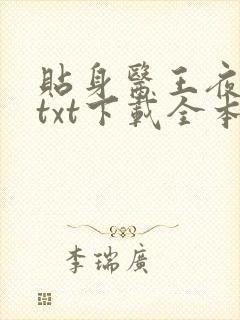 貼身醫王夜
txt下載全本
李瑞廣